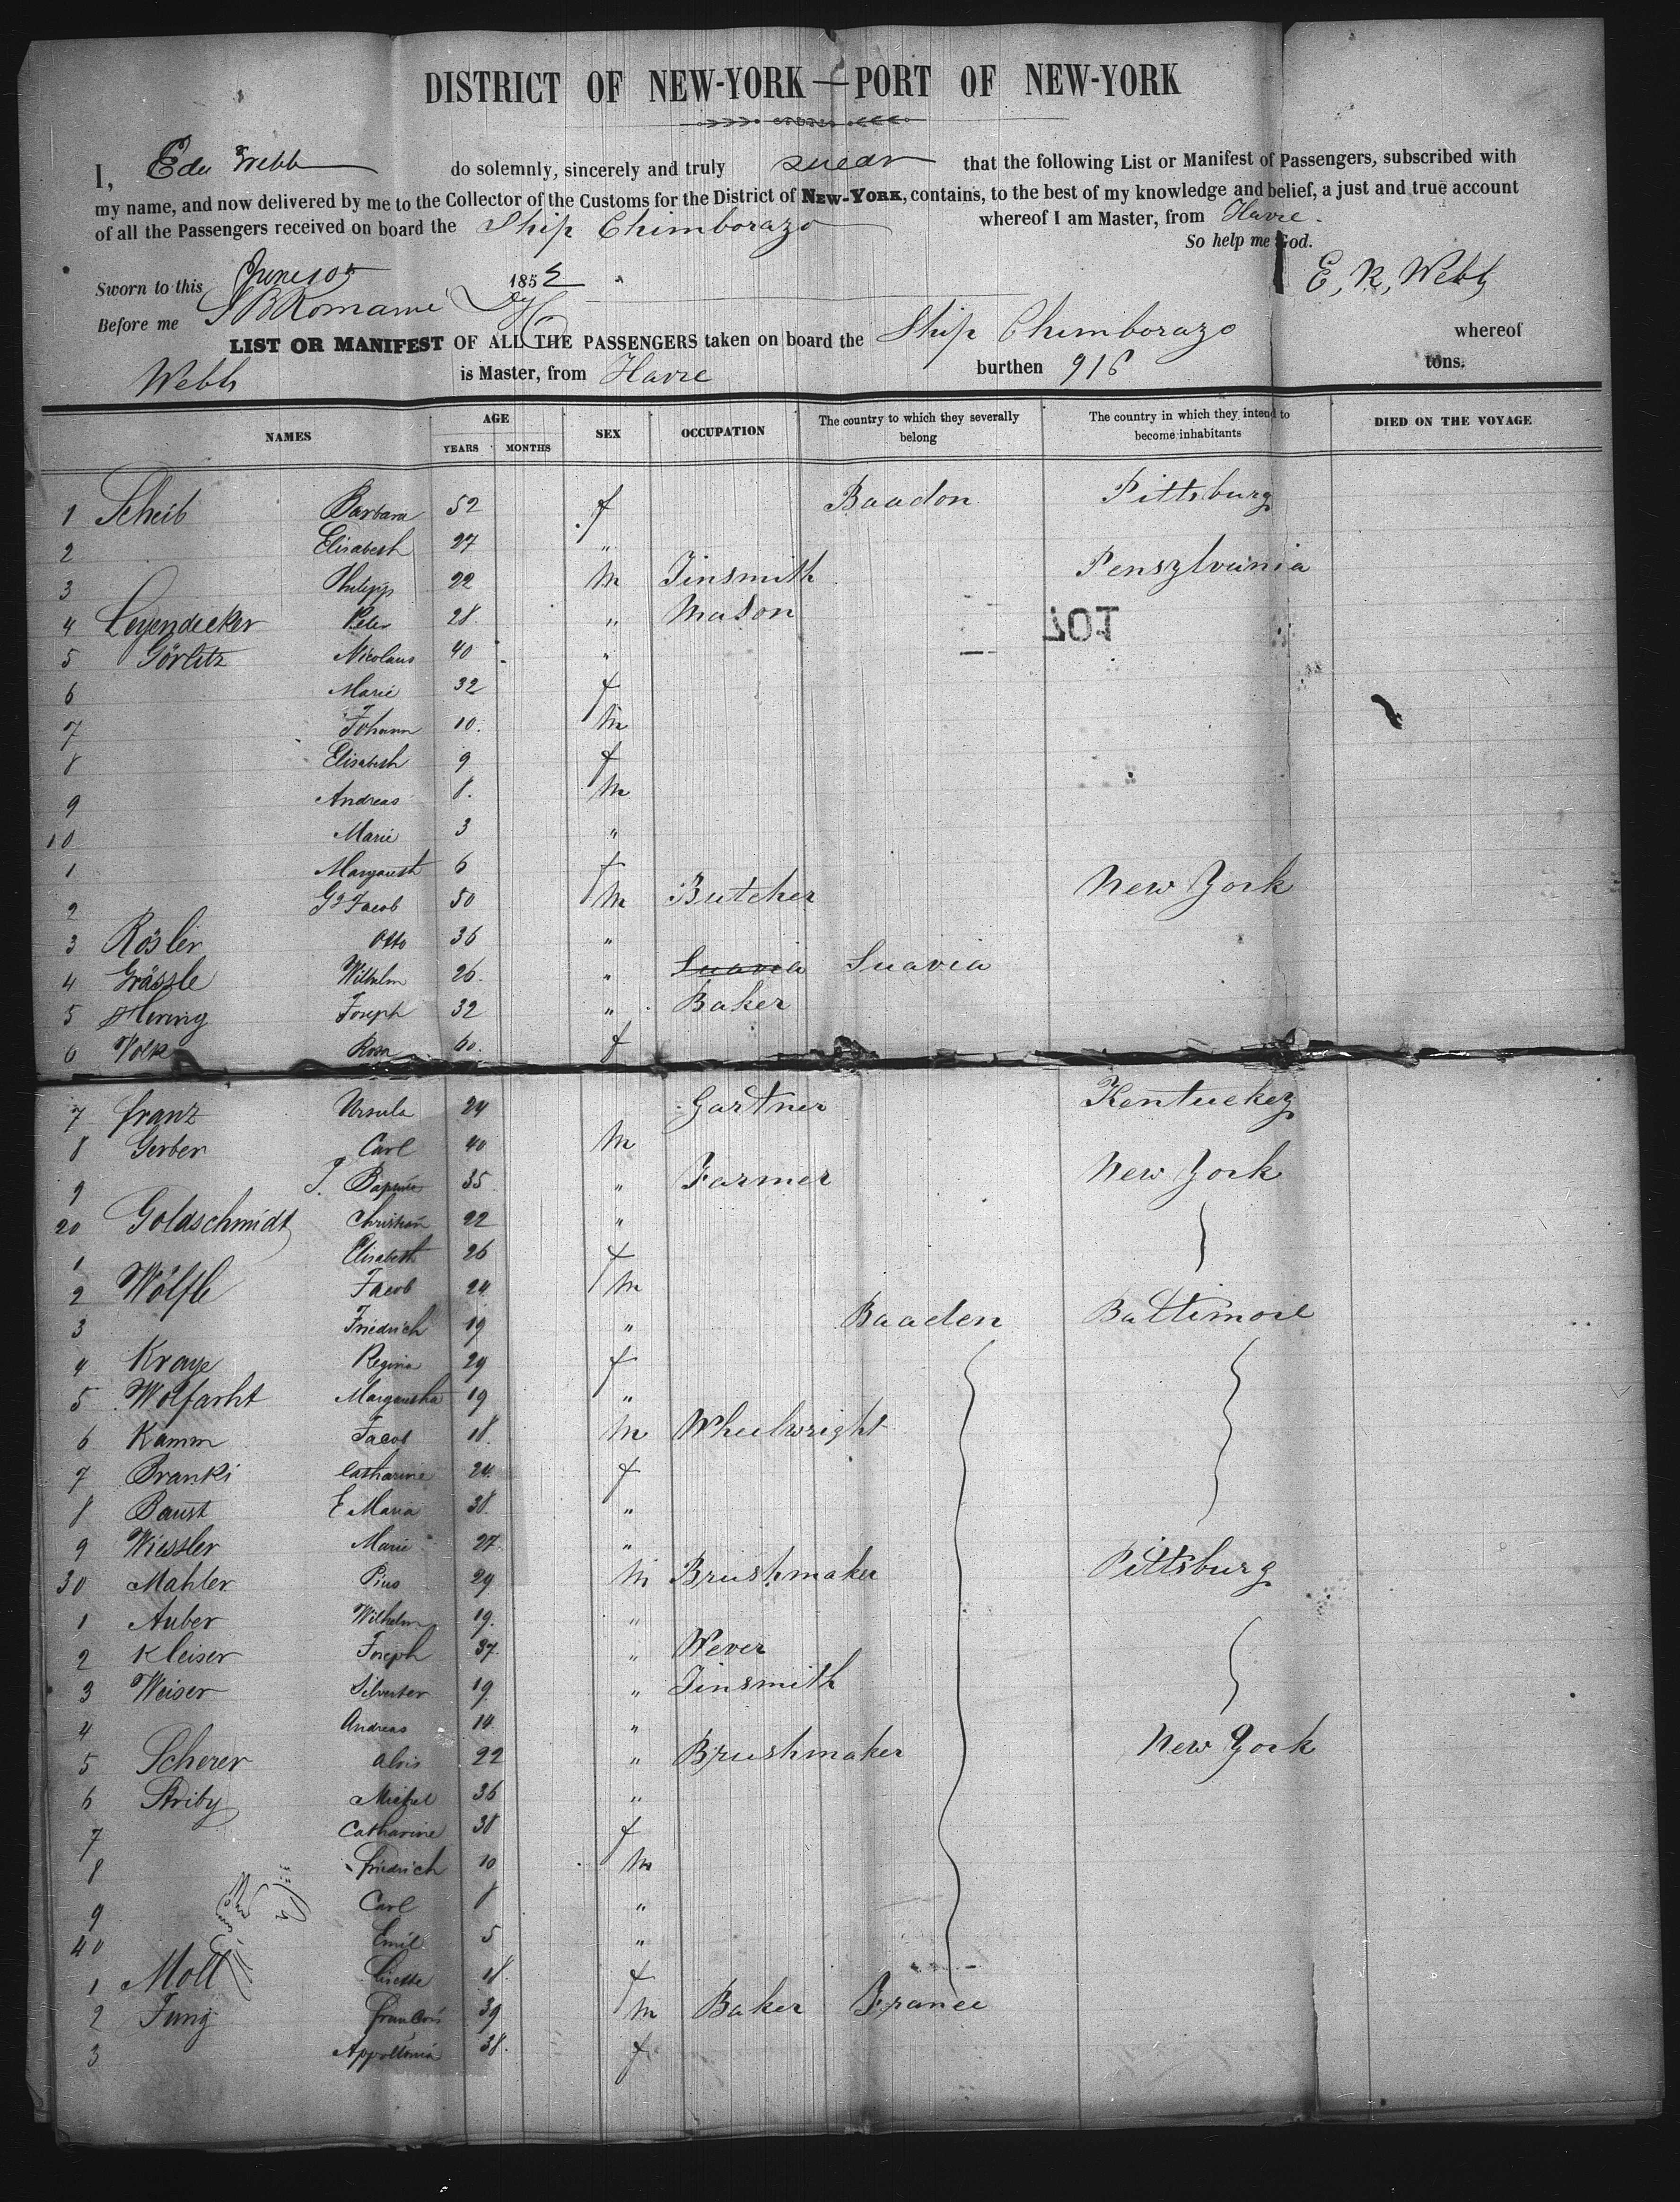 DISTRICT OF NEW-YORK — PORT OF NEW-YORK
I, Edw Webb do solemnly, sincerely and truly swear that the following List or Manifest of Passengers, subscribed with
my name, and now delivered by me to the Collector of the Customs for the District of NEW-YORK, contains, to the best of my knowledge and belief, a just and true account
of all the Passengers received on board the Ship Chimborazo whereof I am Master, from Havre.
So help me God.
Sworn to this June 10th 1852 E, K, Webb
Before me S B Romaine
LIST OR MANIFEST OF ALL THE PASSENGERS taken on board the Ship Chimborazo whereof
Webb is Master, from Havre burthen 916 tons.
NAMES AGE YEARS MONTHS SEX OCCUPATION The country to which they severally belong The country in which they intend to become inhabitants DIED ON THE VOYAGE
1 Scheib Barbara 52 f Baadon Pittsburg
2 Elisabeth 27 "
3 Philipp 22 m Tinsmith Pensylvania
4 Leyendecker Peter 28 " Mason
701
5 Görlitz Nicolaus 40 "
6 Marie 32 f
7 Johann 10. m
8 Elisabeth 9 f
9 Andreas 8. m
10 Marie 3 "
1 Margareth 6 f
2 Jacob 50 m Butcher New York
3 Rösler Otto 36 "
4 Grässle Wilhelm 26. " Suavia Suavia
5 Hering Joseph 32 " Baker
6 Volk Rosa 60. f
7 Franz Ursula 24 Gartner Kentuckey
8 Gerber Carl 40 m
9 J. 35 " Farmer New York
20 Goldschmidt Christian 22 "
1 Elisabeth 26 f
2 Wölfle Jacob 24 m
3 Friedrich 19 " Baaden Baltimore
4 Kraye Regina 29 f
5 Wolfarht Margaretha 19 "
6 Kamm Jacob 18. m Wheelwright
7 Branki Catharine 24. f
8 Baust E Maria 38. "
9 Wiessler Marie 27. "
30 Mahler Pius 29 m Brushmaker Pittsburg
1 Auber Wilhelm 19. "
2 Kleiser Joseph 37. " Wever
3 Weiser Silvester 19 " Tinsmith
4 Andreas 14. "
5 Scherer Alois 22 " Brushmaker New York
6 Striby Michel 36 "
7 Catharine 38 f
8 Friedrich 10 m
9 Carl 8 "
40 Emil 5 "
1 Moll Lisette 18. f
2 Jung Francois 39 m Baker France
3 Appollonia 38. f